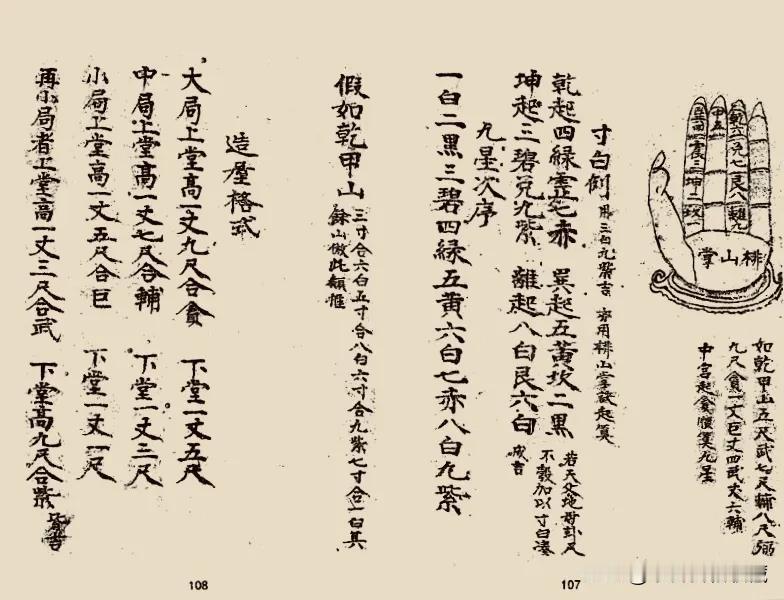 排山掌
乾六兌七艮八離九
中五
震三坤二坎一
如乾甲山五尺武七尺輔八尺弼
九尺貪一丈巨丈四武丈六輔
中宮起貪順算九星
寸白例 用三白九紫吉 亦用排山掌訣起算
乾起四綠震七赤 巽起五黃坎二黑
坤起三碧兌九紫 離起八白艮六白
若天父地母卦尺
不穀加以寸白湊
成吉
九星次序
一白二黑三碧四綠五黃六白七赤八白九紫
假如乾甲山
三寸合六白五寸合八白六寸合九紫七寸合一白其
餘山倣此類推
造屋格式
大局上堂高一丈九尺合貪 下堂一丈五尺
中局上堂高一丈七尺合輔 下堂一丈三尺
小局上堂高一丈五尺合巨 下堂一丈一尺
再小局者上堂高一丈三尺合武 下堂高九尺合紫 皆吉
107
108